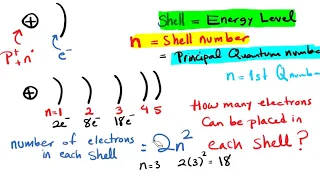 Shell = Energy Level
n = Shell number
= Principal Quantum number
n = 1st Q number
+
P⁺ + n°
e⁻
+
n=1 2 3 4 5
2e⁻ 8e⁻ 18e⁻
number of electrons in each Shell = 2n²
n=3 2(3)² = 18
How many electrons
Can be placed in
each Shell?